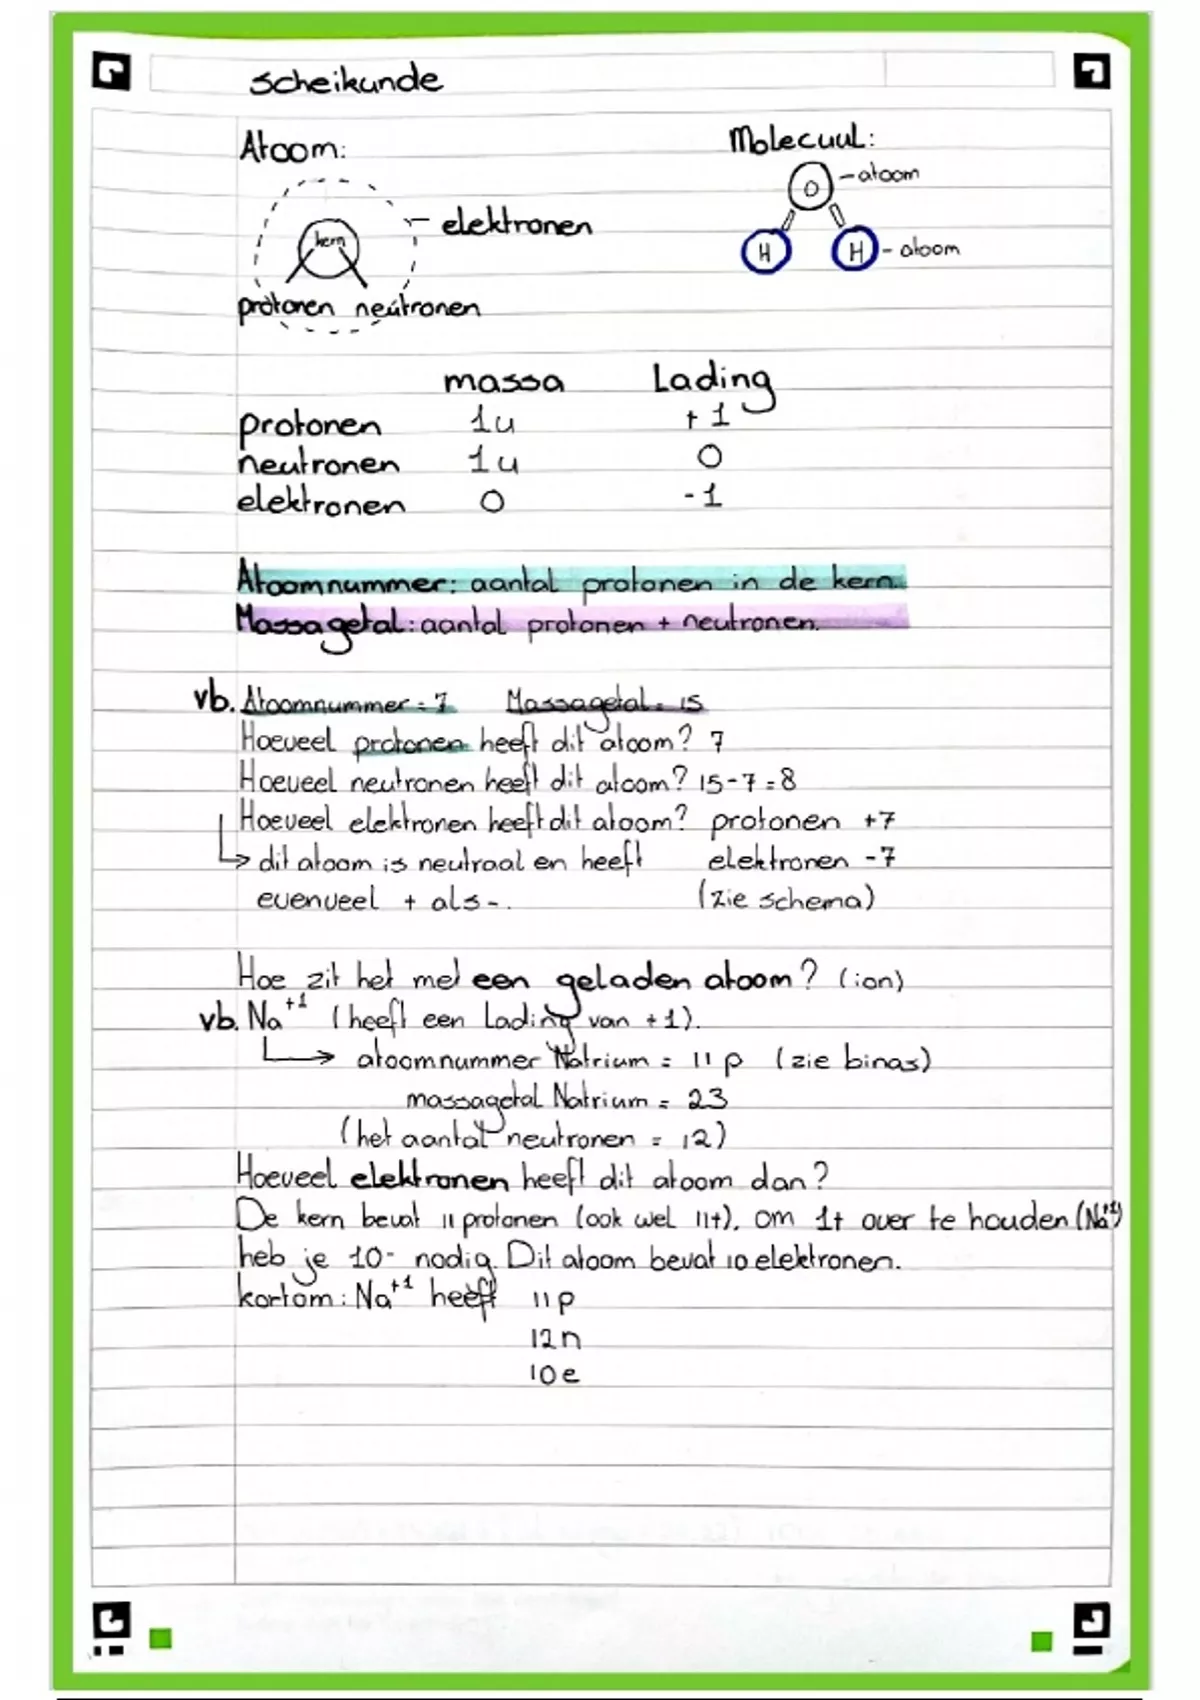 Scheikunde
Atoom:
Molecuul:
O
- atoom
kern
- elektronen
H
H
- atoom
protonen neutronen
massa Lading
protonen 1u +1
neutronen 1u 0
elektronen 0 -1
Atoomnummer: aantal protonen in de kern.
Massagetal: aantal protonen + neutronen.
vb. Atoomnummer = 7 Massagetal = 15
Hoeveel protonen heeft dit atoom? 7
Hoeveel neutronen heeft dit atoom? 15-7=8
Hoeveel elektronen heeft dit atoom? protonen +7
↳ dit atoom is neutraal en heeft elektronen -7
evenveel + als -. (zie schema)
Hoe zit het met een geladen atoom? (ion)
vb. Na⁺¹ (heeft een Lading van +1).
↳ atoomnummer Natrium = 11 p (zie binas)
massagetal Natrium = 23
(het aantal neutronen = 12)
Hoeveel elektronen heeft dit atoom dan?
De kern bevat 11 protonen (ook wel 11+), om 1+ over te houden (Na⁺¹)
heb je 10- nodig. Dit atoom bevat 10 elektronen.
kortom: Na⁺¹ heeft 11p
12n
10e